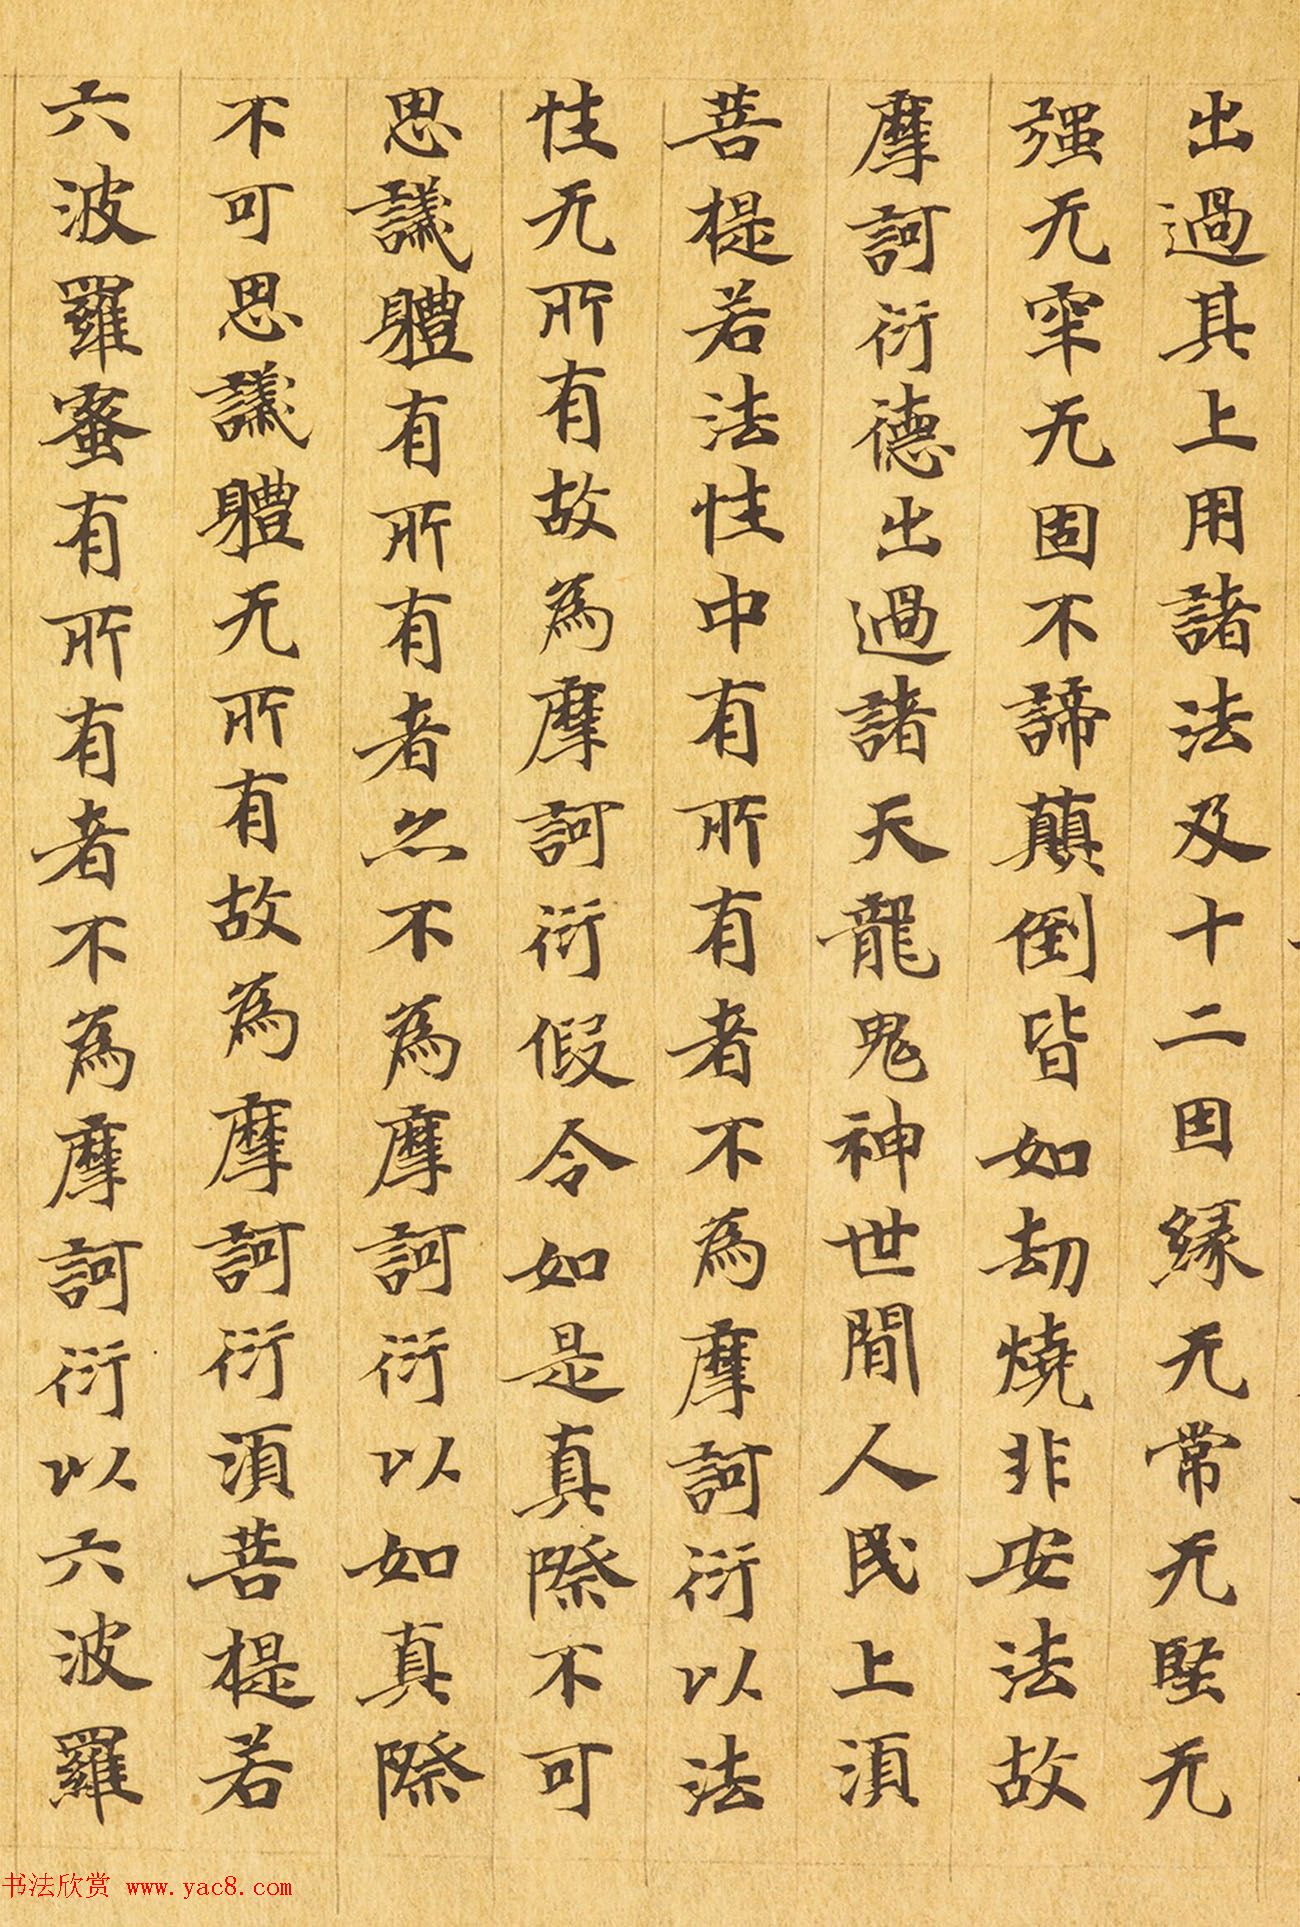 出過其上用諸法及十二因緣无常无堅无
强无牢无固不諦顛倒皆如劫燒非安法故
摩訶衍德出過諸天龍鬼神世間人民上須
菩提若法性中有所有者不為摩訶衍以法
性无所有故為摩訶衍假令如是真際不可
思議體有所有者忽不為摩訶衍以如真際
不可思議體无所有故為摩訶衍須菩提若
六波羅蜜有所有者不為摩訶衍以六波羅
书法欣赏 www.yac8.com